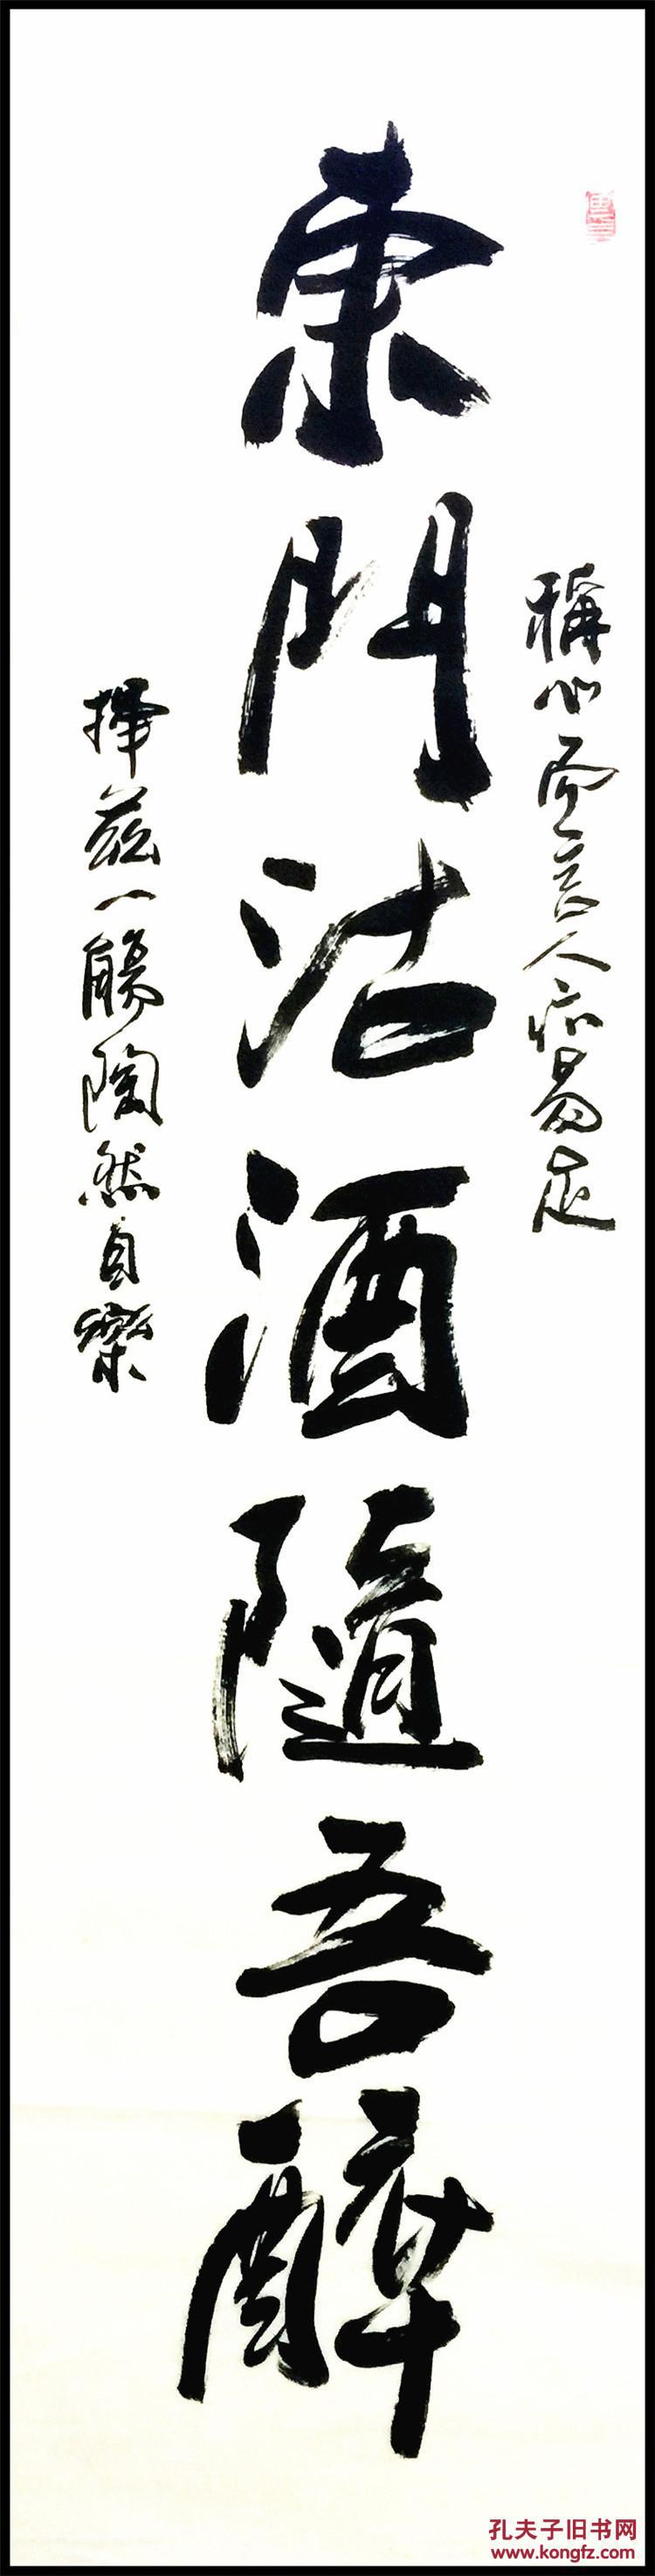 稱心而言人亦易足
東門沽酒隨吾醉
揮茲一觴陶然自樂
孔夫子旧书网
www.kongfz.com